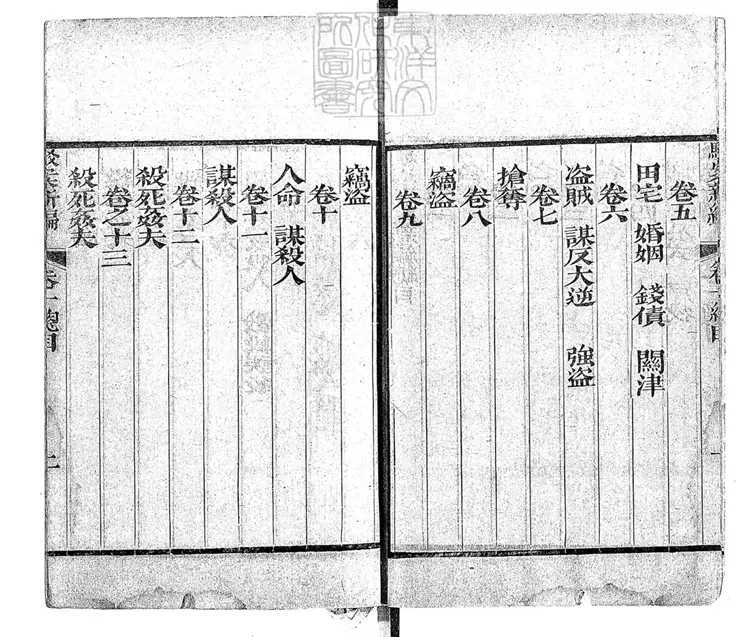 卷五
田宅 婚姻 錢債 關津
卷六
盗賊 謀反大逆 強盗
卷七
搶奪
卷八
竊盗
卷九
竊盗
卷十
人命 謀殺人
卷十一
謀殺人
卷十二
殺死姦夫
卷之十三
殺死姦夫
新編
總目
二
東洋文
化研究
所圖書